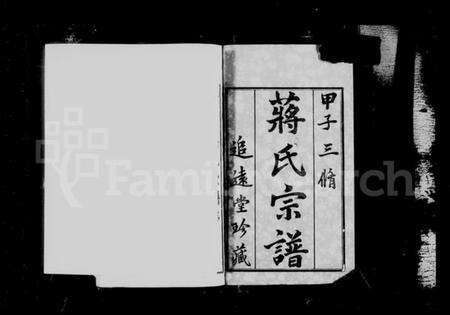 甲子三脩
蔣氏宗譜
追遠堂珍藏
FamilySearch